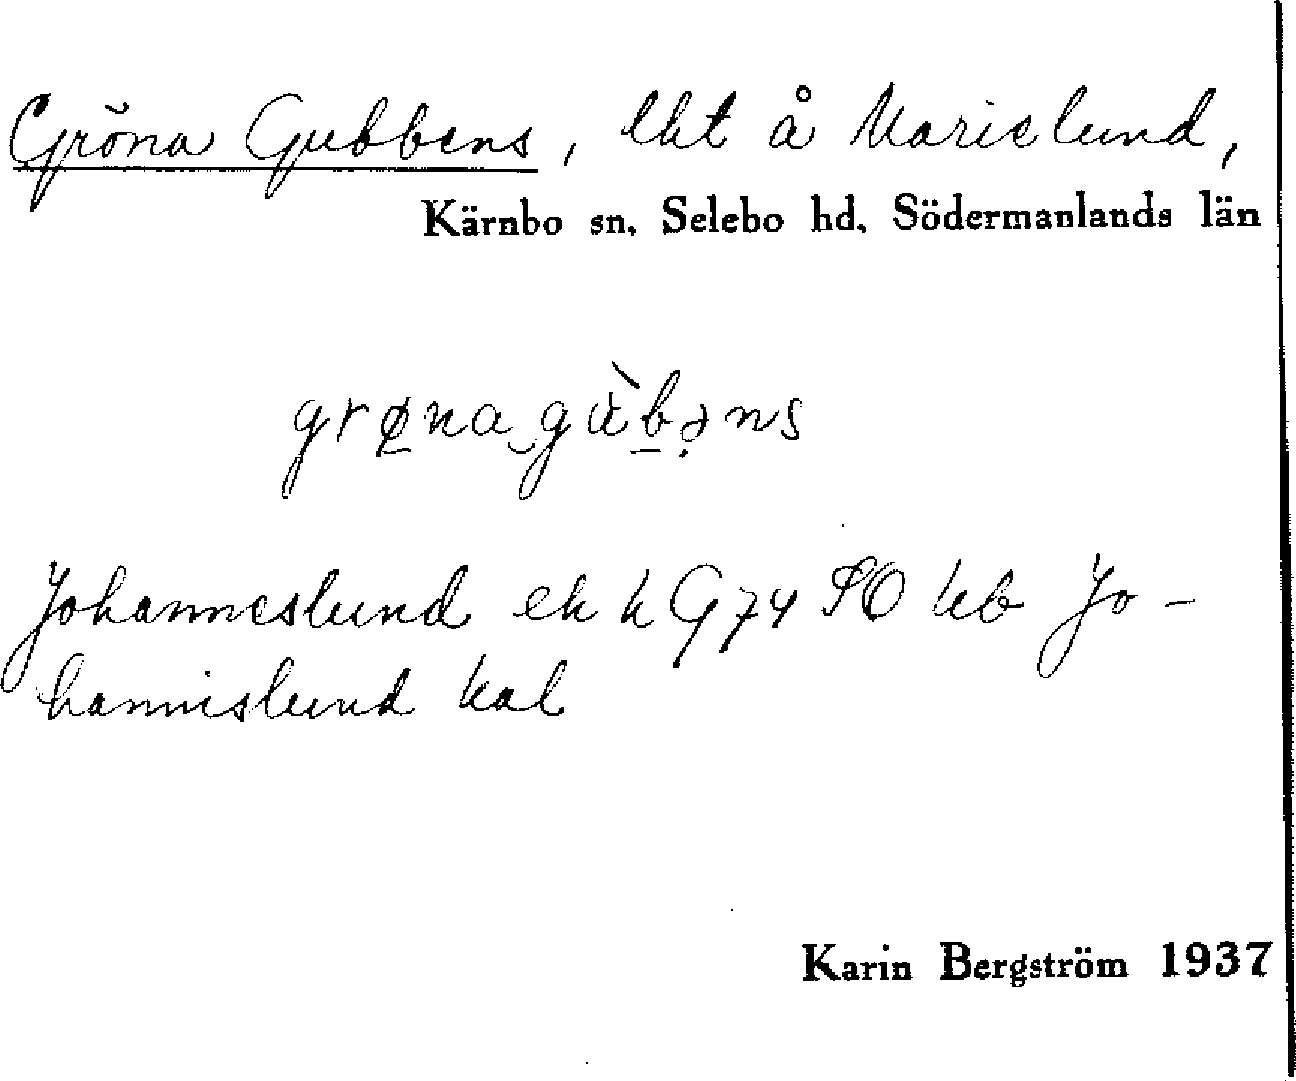 Gröna Gubbens, lht å Marielund,
Kärnbo sn. Selebo hd. Södermanlands län
grøna gùbəns
Johanneslund ek k G74 SO kb Jo-
hannislund kal
Karin Bergström 1937